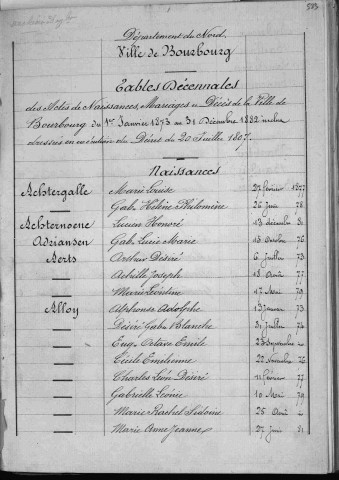 583
Département du Nord
Ville de Bourbourg
Tables Décennales
des Actes de Naissances, Mariages et Décès de la Ville de
Bourbourg du 1er Janvier 1873 au 31 Décembre 1882 inclus
dressées en exécution du Décret du 20 Juillet 1807.
Naissances
Achtergalle Marie Louise 27 février 1877
— Gab. Hélène Philomène 26 Juin 78
Achternoene Lucien Honoré 13 décembre 80
Adriansen Gab. Lucie Marie 15 Octobre 76
Aerts Arthur Désiré 6 Juillet 73
— Achille Joseph 18 Août 77
— Marie Léontine 17 Mai 79
Alloy Alphonse Adolphe 13 Janvier 73
— Désiré Gab. Blanche 31 Juillet 74
— Eug. Octave Emile Septembre
— Cécile Emilienne 22 Novembre 76
— Charles Léon Désiré 11 février 77
— Gabrielle Léonie 10 Mai 79
— Marie Rachel Sidonie 25 Août
— Marie Anne Jeanne 27 Juin 81